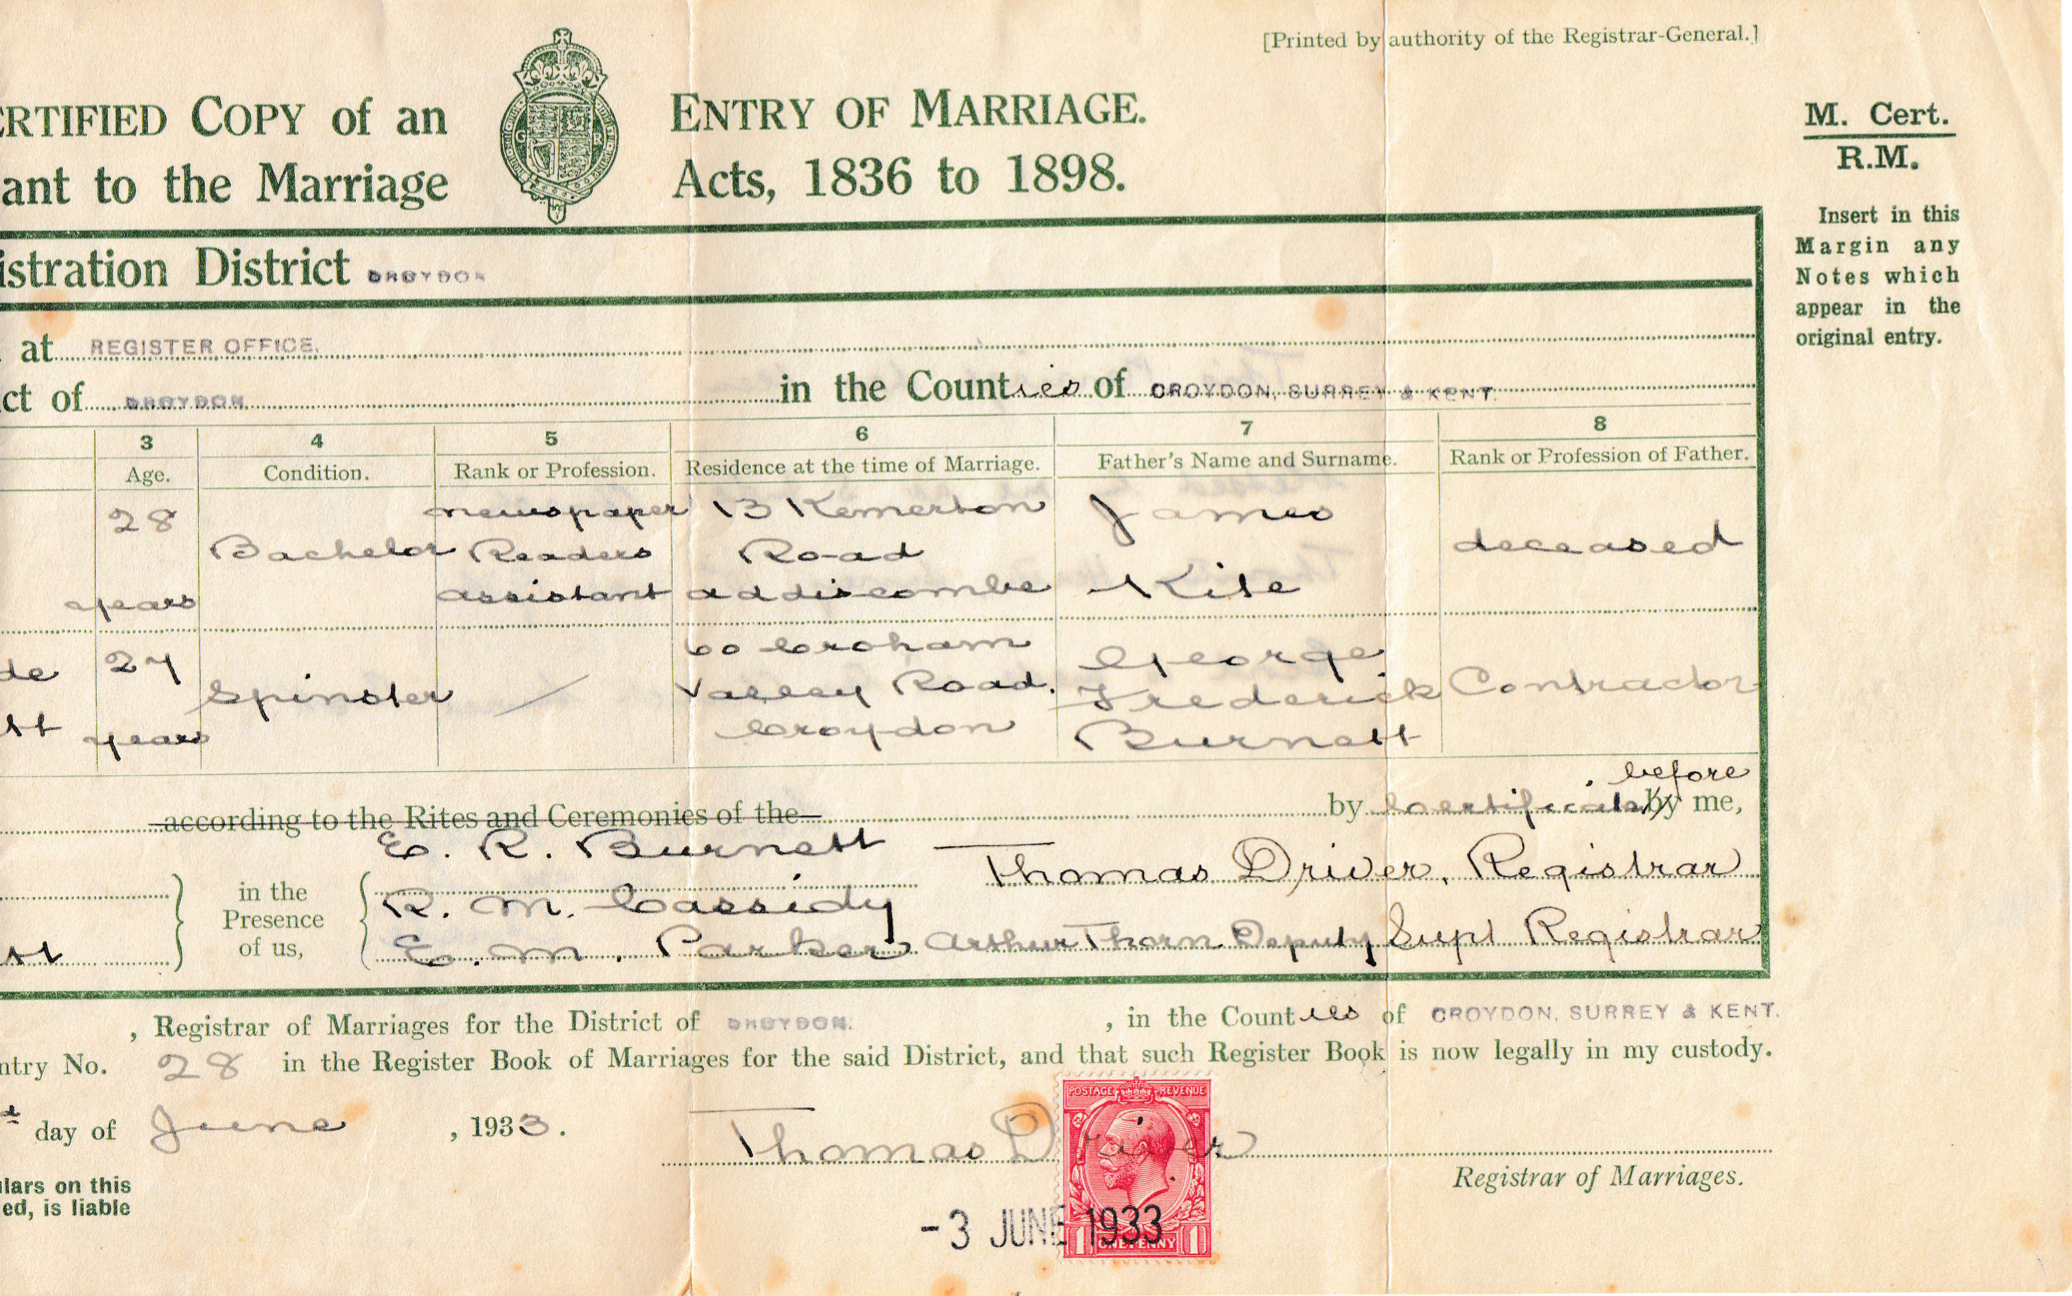 [Printed by authority of the Registrar-General.]
ERTIFIED COPY of an ENTRY OF MARRIAGE.
ant to the Marriage Acts, 1836 to 1898.
M. Cert.
R.M.
Insert in this
Margin any
Notes which
appear in the
original entry.
istration District CROYDON
at REGISTER OFFICE.
ct of CROYDON in the Counties of CROYDON, SURREY & KENT.
3 4 5 6 7 8
Age. Condition. Rank or Profession. Residence at the time of Marriage. Father's Name and Surname. Rank or Profession of Father.
28 years Bachelor newspaper Readers assistant 13 Kemerton Road addiscombe James Kite deceased
de
tt
27 years Spinster 60 Croham Valley Road. Croydon George Frederick Burnett Contractor
according to the Rites and Ceremonies of the by Certificate before by me,
in the
Presence
of us,
E. R. Burnett
R. M. Cassidy
E. M. Parker
Thomas Driver, Registrar
Arthur Thorn Deputy Supt Registrar
, Registrar of Marriages for the District of CROYDON. , in the Counties of CROYDON, SURREY & KENT.
ntry No. 28 in the Register Book of Marriages for the said District, and that such Register Book is now legally in my custody.
day of June , 1933.
Thomas Driver
Registrar of Marriages.
lars on this
ed, is liable
POSTAGE REVENUE
1 ONE PENNY 1
-3 JUNE 1933